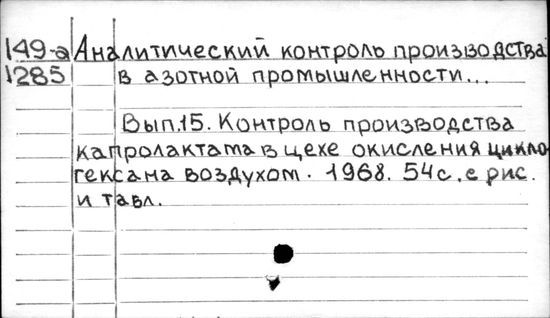 149-а Аналитический контроль производства
1285 в азотной промышленности...
Вып.15. Контроль производства
капролактама в цехе окисления цикло-
гексана воздухом. 1968. 54с. с рис.
и табл.